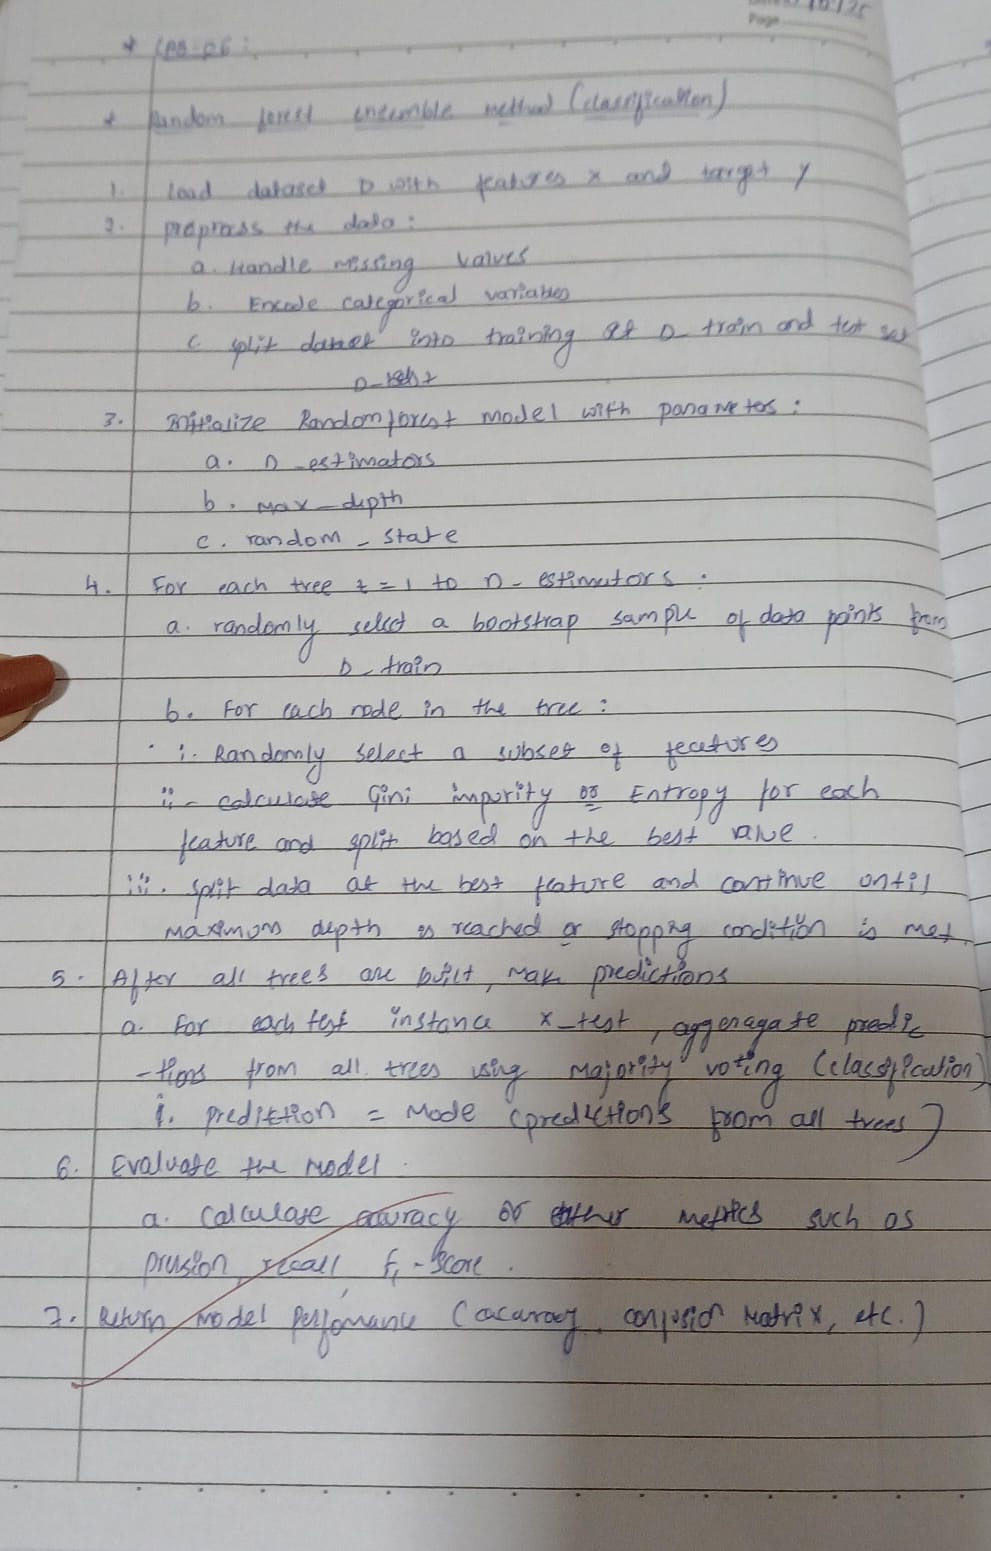 Page
* LAB-06:
* Random forest ensemble method (classification)
1. Load dataset D with features x and target y
2. preprocess the data:
a. Handle missing values
b. Encode categorical variables
c split dataset into training set D_train and test set
D_test
3. initialize Randomforest model with parameters:
a. n_estimators
b. max_depth
c. random_state
4. For each tree t=1 to n_estimators:
a. randomly select a bootstrap sample of data points from
D_train
b. For each node in the tree:
i. Randomly select a subset of features
ii- calculate Gini impurity or Entropy for each
feature and split based on the best value.
iii. split data at the best feature and continue until
maximum depth is reached or stopping condition is met.
5. After all trees are built, make predictions
a. For each test instance x_test, aggeragate predic
-tions from all trees using majority voting (classification)
i. prediction = Mode (predictions from all trees)
6. Evaluate the model.
a. calculate accuracy or other metrics such as
precision, recall, F1-score.
7. Return model performance (accuracy, confusion matrix, etc.)